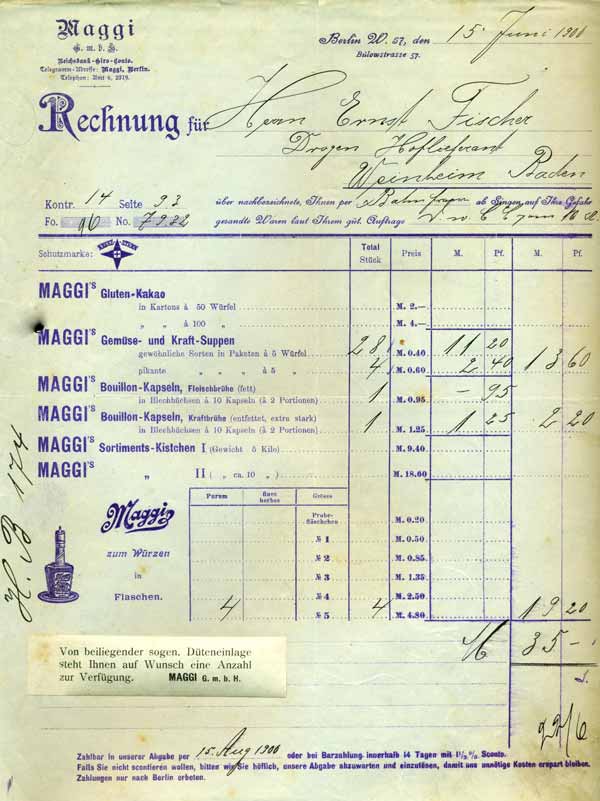 Maggi
G. m. b. H.
Reichsbank-Giro-Conto.
Telegramm-Adresse: Maggi, Berlin.
Telephon: Amt 6, 2319.
Berlin W. 57, den 15. Juni 1900
Bülowstrasse 57.
Rechnung für Herrn Ernst Fischer
Drogen Hoflieferant
Weinheim Baden
Kontr. 14 Seite 93 über nachbezeichnete, Ihnen per ab Singen, auf Ihre Gefahr
Fo. 96 No. 7932 gesandte Waren laut Ihrem güt. Auftrage
Schutzmarke: Total Stück Preis M. Pf. M. Pf.
MAGGI'S Gluten-Kakao
in Kartons à 50 Würfel M. 2.—
„ „ à 100 „ M. 4.—
MAGGI'S Gemüse- und Kraft-Suppen
gewöhnliche Sorten in Paketen à 5 Würfel 28 M. 0.40 11 20
pikante „ „ à 5 „ 4 M. 0.60 2 40 13 60
MAGGI'S Bouillon-Kapseln, Fleischbrühe (fett)
in Blechbüchsen à 10 Kapseln (à 2 Portionen) 1 M. 0.95 — 95
MAGGI'S Bouillon-Kapseln, Kraftbrühe (entfettet, extra stark)
in Blechbüchsen à 10 Kapseln (à 2 Portionen) 1 M. 1.25 1 25 2 20
MAGGI'S Sortiments-Kistchen I (Gewicht 5 Kilo) M. 9.40
MAGGI'S „ II ( „ ca. 10 „ ) M. 18.60
Parem fines herbes Grösse
Maggi
zum Würzen
in
Flaschen.
Probe-
fläschchen M. 0.20
№ 1 M. 0.50
№ 2 M. 0.85
№ 3 M. 1.35
№ 4 M. 2.50
4 № 5 4 M. 4.80 19 20
M 35 —
H. B 174
Von beiliegender sogen. Düteneinlage
steht Ihnen auf Wunsch eine Anzahl
zur Verfügung. MAGGI G. m. b. H.
22/6
Zahlbar in unserer Abgabe per 15. Aug 1900 oder bei Barzahlung innerhalb 14 Tagen mit 1½ % Sconto.
Falls Sie nicht scontieren wollen, bitten wir Sie höflich, unsere Abgabe abzuwarten und einzulösen, damit uns unnötige Kosten erspart bleiben.
Zahlungen nur nach Berlin erbeten.